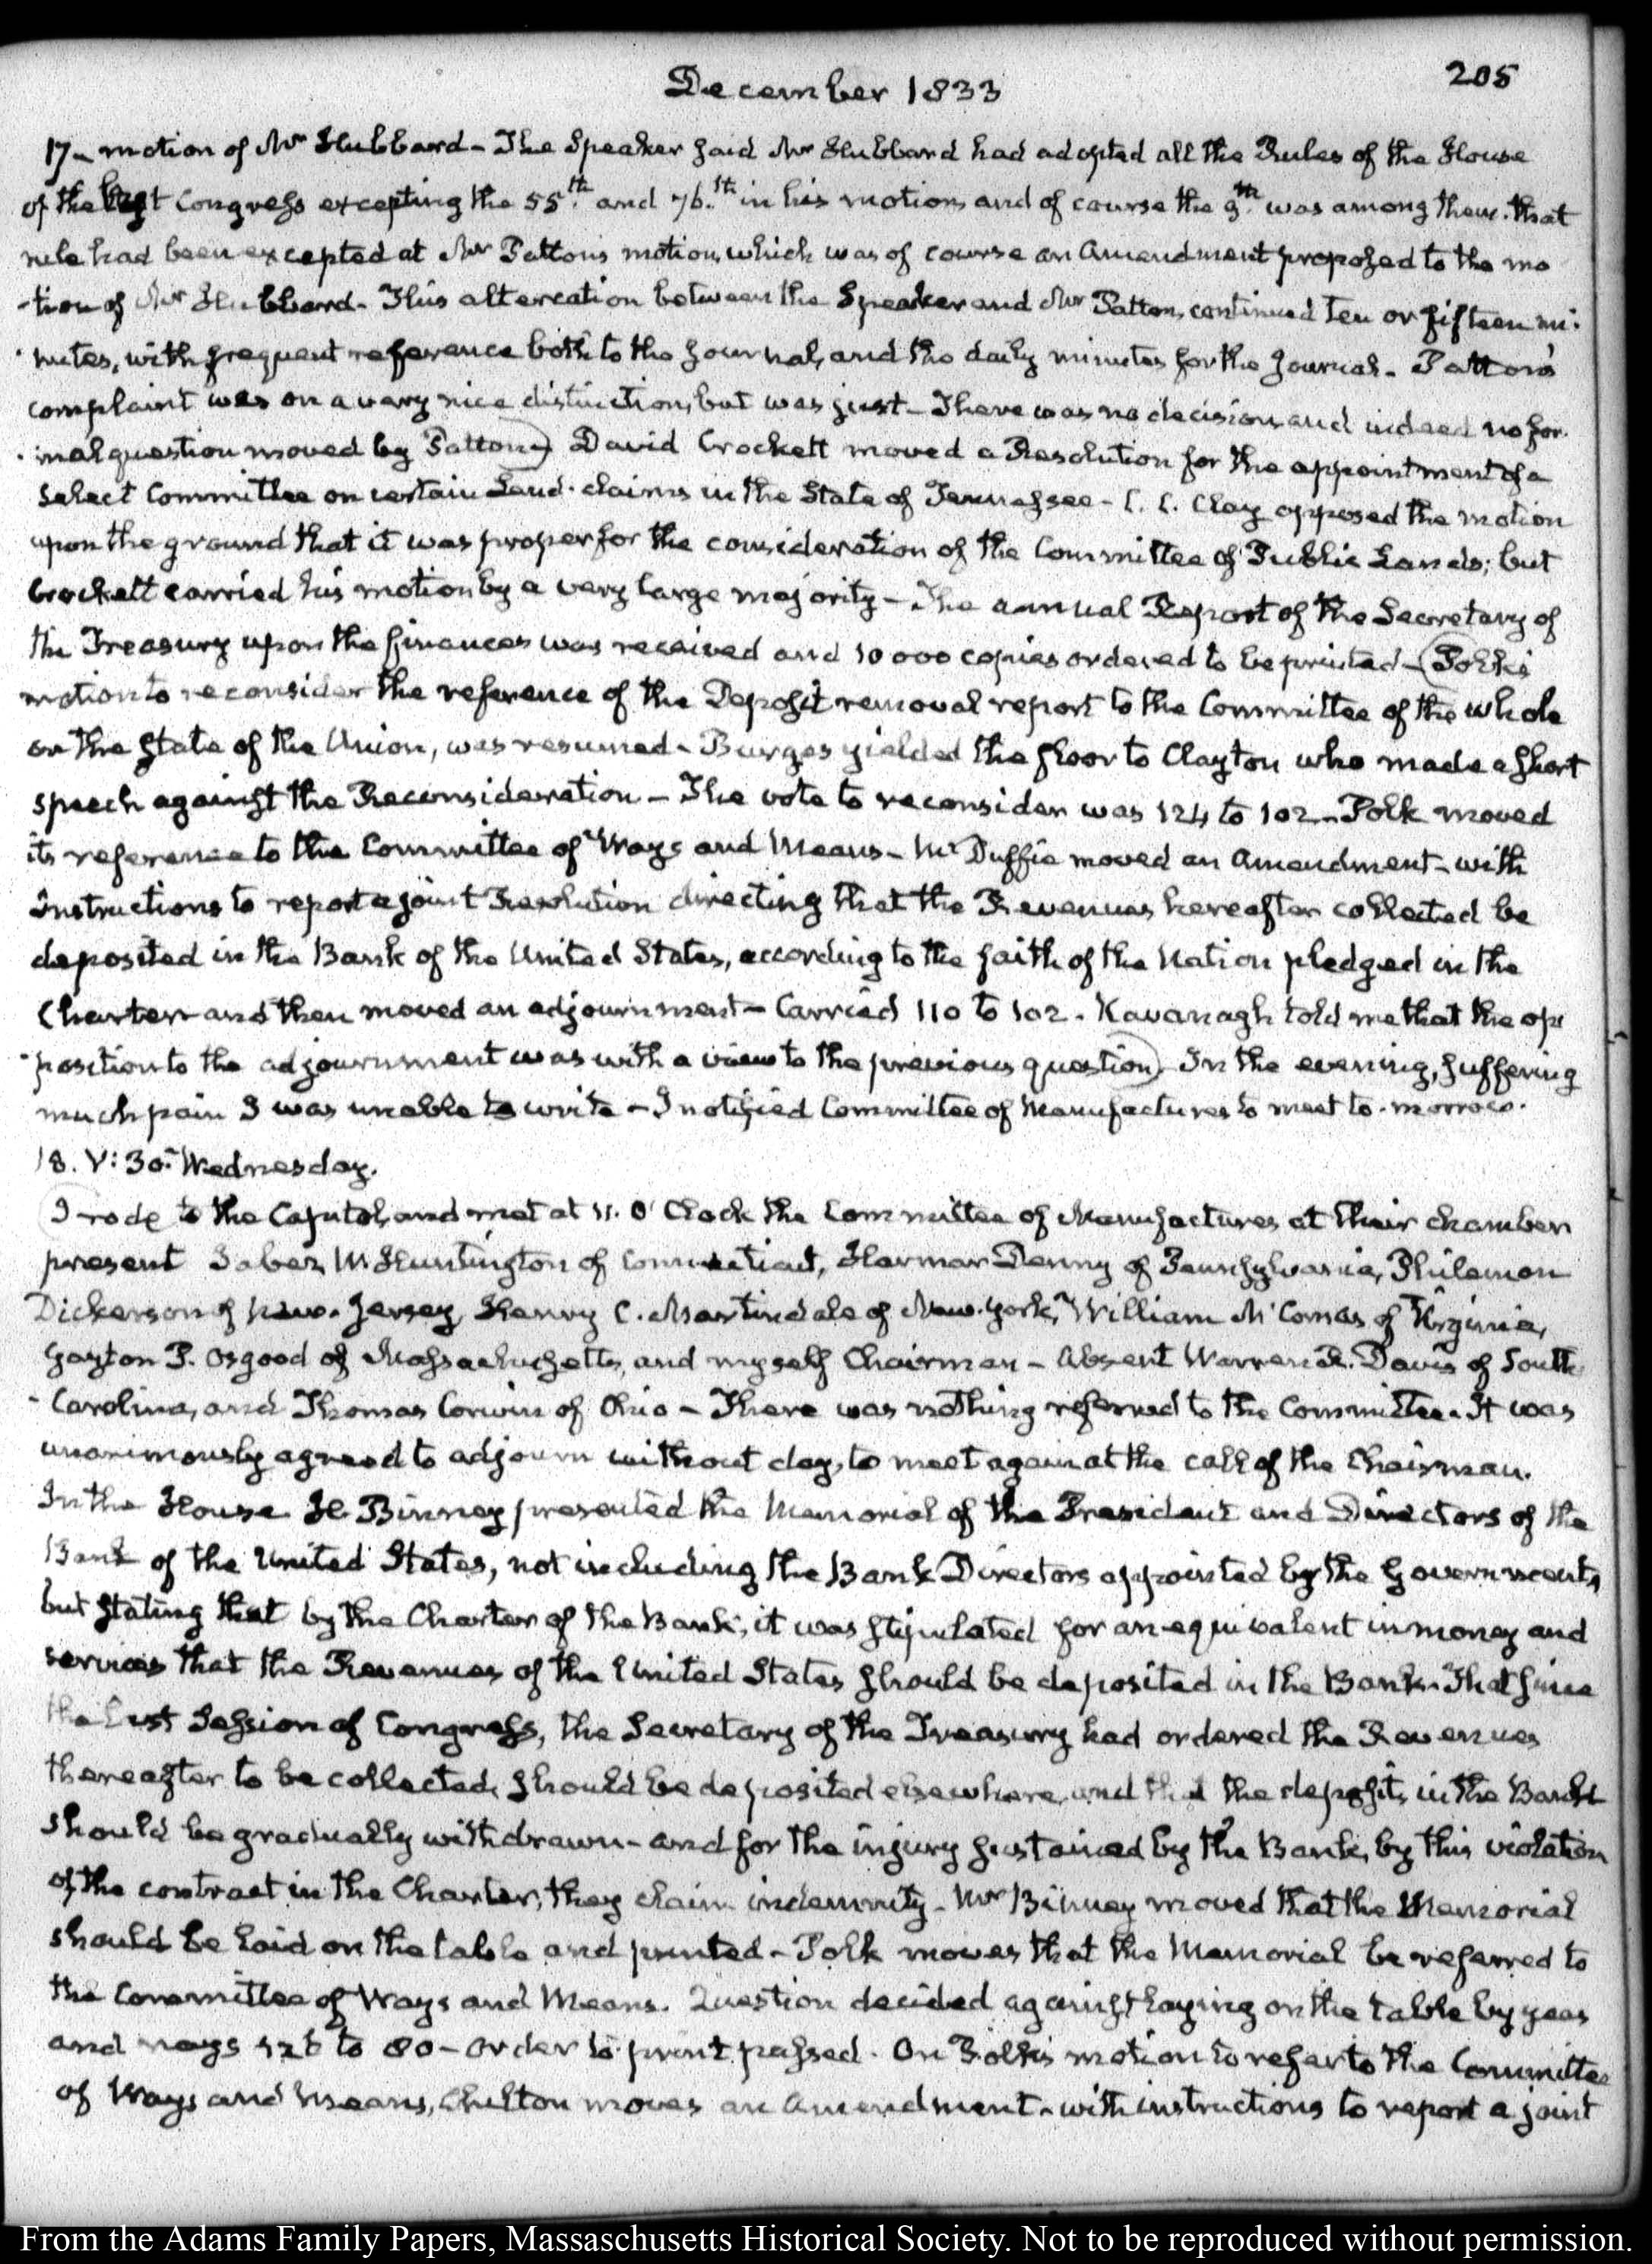 December 1833
205
17- motion of Mr Hubbard - The Speaker said Mr Hubbard had adopted all the Rules of the House
of the last Congress excepting the 55th. and 76.th in his motion, and of course the 9th. was among them. that
rule had been excepted at Mr Patton's motion, which was of course an Amendment proposed to the mo
-tion of Mr Hubbard - This altercation between the Speaker and Mr Patton, continued ten or fifteen mi-
-nutes, with frequent reference both to the Journal, and the daily minutes for the Journal - Patton's
complaint was on a very nice distinction, but was just - There was no decision, and indeed no for-
-mal question moved by Patton - David Crockett moved a Resolution for the appointment of a
Select Committee on certain Land-claims in the State of Tennessee - C. C. Clay opposed the motion
upon the ground that it was proper for the consideration of the Committee of Public Lands; but
Crockett carried his motion by a very large majority - The annual Report of the Secretary of
the Treasury upon the finances was received and 10000 copies ordered to be printed - Polk's
motion to reconsider the reference of the Deposit removal report to the Committee of the whole
on the State of the Union, was resumed - Burges yielded the floor to Clayton who made a short
speech against the Reconsideration - The vote to reconsider was 124 to 102 - Polk moved
its reference to the Committee of Ways and Means - McDuffie moved an Amendment - with
Instructions to report a joint Resolution directing that the Revenues hereafter collected be
deposited in the Bank of the United States, according to the faith of the Nation pledged in the
Charter and then moved an adjournment - Carried 110 to 102. Kavanagh told me that the op
-position to the adjournment was with a view to the previous question - In the evening, suffering
much pain I was unable to write - I notified Committee of Manufactures to meet to-morrow.
18. V: 30. Wednesday.
I rode to the Capitol, and met at 11. O'Clock the Committee of Manufactures at their chamber
present Jabez W Huntington of Connecticut, Harmar Denny of Pennsylvania, Philemon
Dickerson of New-Jersey, Henry C. Martindale of New-York, William McComas of Virginia,
Gayton P. Osgood of Massachusetts, and myself Chairman - Absent Warren R. Davis of South
-Carolina, and Thomas Corwin of Ohio - There was nothing referred to the Committee. It was
unanimously agreed to adjourn without day, to meet again at the call of the Chairman.
In the House H. Binney presented the Memorial of the President and Directors of the
Bank of the United States, not including the Bank Directors appointed by the Government,
but stating that by the Charter of the Bank, it was stipulated for an equivalent in money and
services that the Revenues of the United States should be deposited in the Bank. That since
the last Session of Congress, the Secretary of the Treasury had ordered the Revenues
thereafter to be collected, should be deposited elsewhere, and that the deposits in the Bank
should be gradually withdrawn - and for the injury sustained by the Bank, by this violation
of the contract in the Charter, they claim indemnity - Mr Binney moved that the Memorial
should be laid on the table and printed - Polk moves that the Memorial be referred to
the Committee of Ways and Means. Question decided against laying on the table by yeas
and nays 126 to 80 - order to print passed. On Polk's motion to refer to the Committee
of Ways and Means, Chilton moves an Amendment - with instructions to report a joint
From the Adams Family Papers, Massachusetts Historical Society. Not to be reproduced without permission.